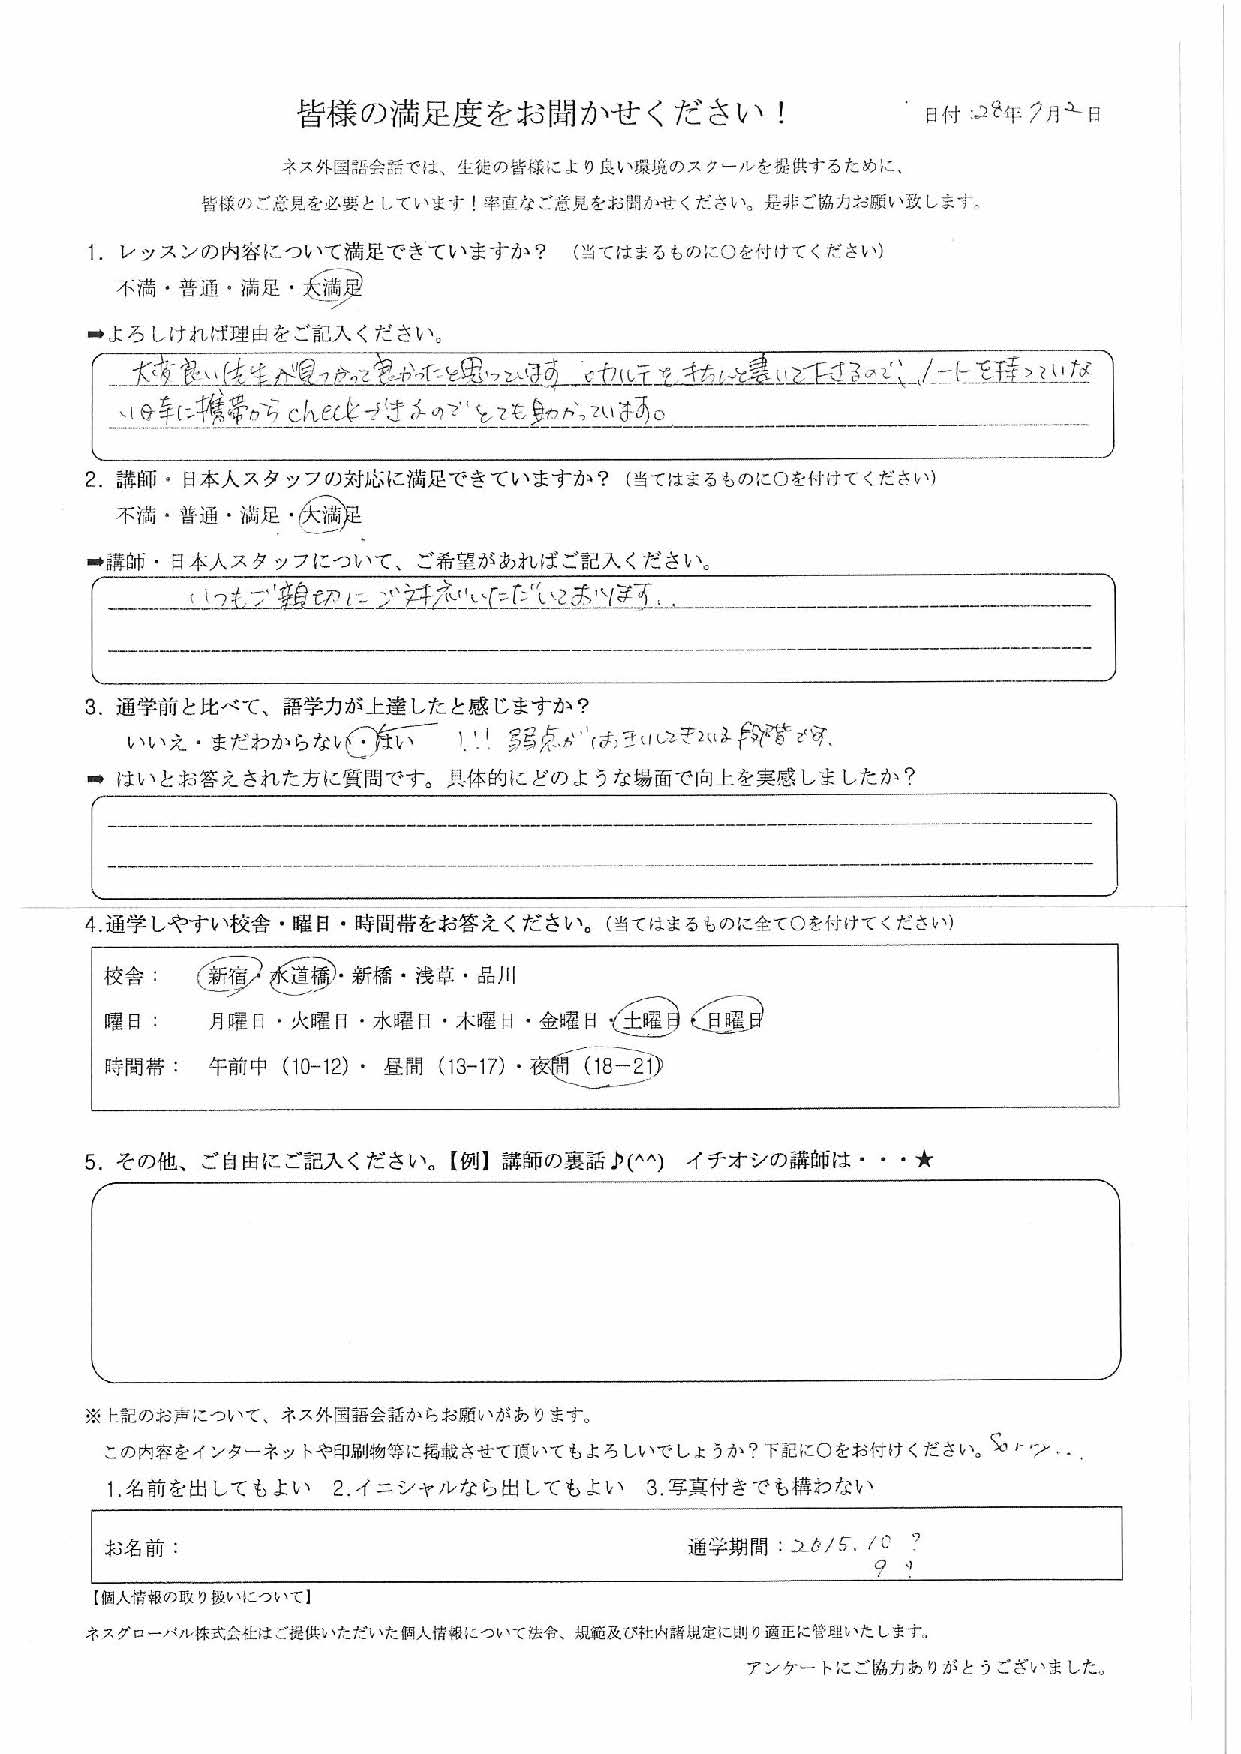 皆様の満足度をお聞かせください！
日付:28年7月2日
ネス外国語会話では、生徒の皆様により良い環境のスクールを提供するために、
皆様のご意見を必要としています！率直なご意見をお聞かせください。是非ご協力お願い致します。
1. レッスンの内容について満足できていますか？ （当てはまるものに〇を付けてください）
不満・普通・満足・大満足
➡よろしければ理由をご記入ください。
大変良い先生が見つかって良かったと思っています カルテをきちんと書いて下さるので、ノートを持っていな
い日等に携帯からcheckできるのでとても助かっています。
2. 講師・日本人スタッフの対応に満足できていますか？（当てはまるものに〇を付けてください）
不満・普通・満足・大満足
➡講師・日本人スタッフについて、ご希望があればご記入ください。
いつもご親切にご対応いただいております。
3. 通学前と比べて、語学力が上達したと感じますか？
いいえ・まだわからない・はい !!! 弱点が はっきりしてきている段階です。
➡ はいとお答えされた方に質問です。具体的にどのような場面で向上を実感しましたか？
4.通学しやすい校舎・曜日・時間帯をお答えください。（当てはまるものに全て〇を付けてください）
校舎： 新宿・水道橋・新橋・浅草・品川
曜日： 月曜日・火曜日・水曜日・木曜日・金曜日・土曜日・日曜日
時間帯： 午前中（10-12）・ 昼間（13-17）・夜間（18－21）
5. その他、ご自由にご記入ください。【例】講師の裏話♪(^^) イチオシの講師は・・・★
※上記のお声について、ネス外国語会話からお願いがあります。
この内容をインターネットや印刷物等に掲載させて頂いてもよろしいでしょうか？下記に〇をお付けください。Sorry...
1.名前を出してもよい 2.イニシャルなら出してもよい 3.写真付きでも構わない
お名前： 通学期間：2015.10 ?
9 ?
【個人情報の取り扱いについて】
ネスグローバル株式会社はご提供いただいた個人情報について法令、規範及び社内諸規定に則り適正に管理いたします。
アンケートにご協力ありがとうございました。